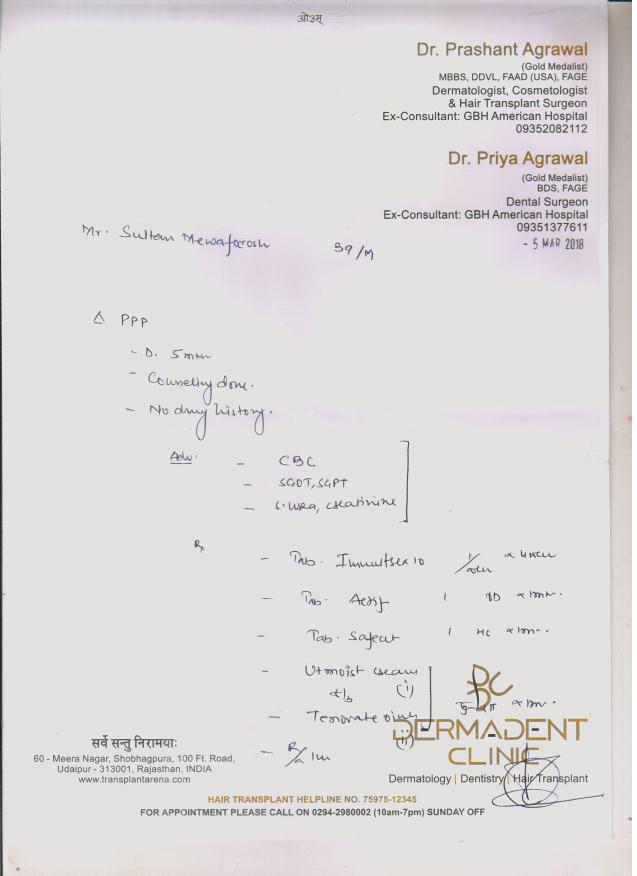 ओ३म्
Dr. Prashant Agrawal
(Gold Medalist)
MBBS, DDVL, FAAD (USA), FAGE
Dermatologist, Cosmetologist
& Hair Transplant Surgeon
Ex-Consultant: GBH American Hospital
09352082112
Dr. Priya Agrawal
(Gold Medalist)
BDS, FAGE
Dental Surgeon
Ex-Consultant: GBH American Hospital
09351377611
- 5 MAR 2018
Mr. Sultan Mewafarosh 39/M
Δ PPP
- D. 5
- Counselling done.
- No drug history.
Adv. - CBC
- SGOT, SGPT
- S. urea, creatinine
Rx
- Tab. 10
- Tab. 1
- Tab. 1
- Utmoist cream
(i)
- Tenovate oint
(ii)
- R/A 1m
DERMADENT
CLINIC
Dermatology | Dentistry | Hair Transplant
सर्वे सन्तु निरामयाः
60 - Meera Nagar, Shobhagpura, 100 Ft. Road,
Udaipur - 313001, Rajasthan, INDIA
www.transplantarena.com
HAIR TRANSPLANT HELPLINE NO. 75975-12345
FOR APPOINTMENT PLEASE CALL ON 0294-2980002 (10am-7pm) SUNDAY OFF